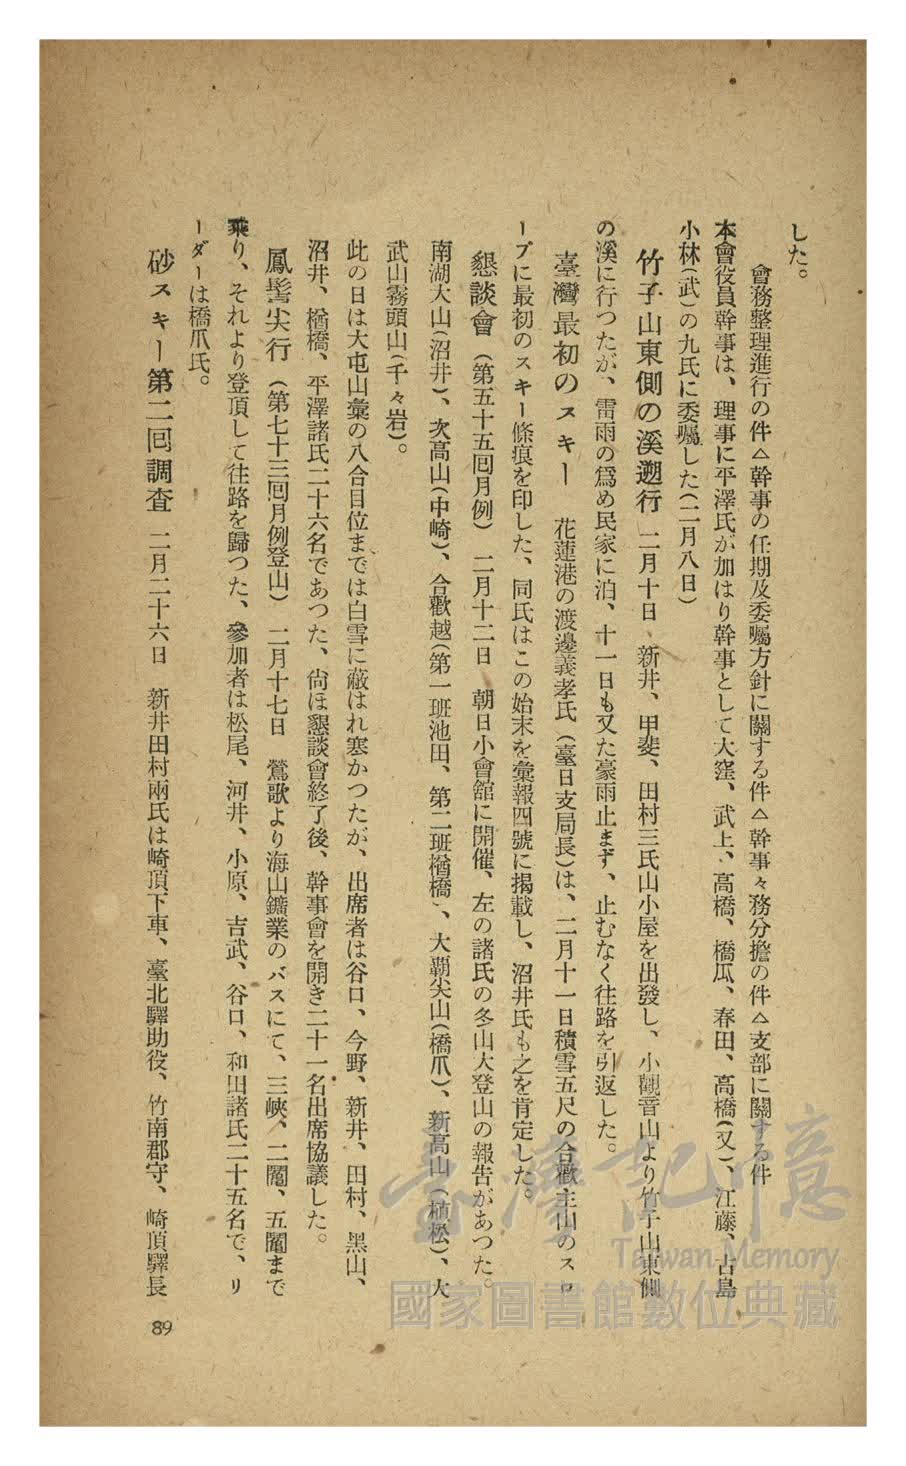 した。
會務整理進行の件△幹事の任期及委囑方針に關する件△幹事々務分擔の件△支部に關する件
本會役員幹事は、理事に平澤氏が加はり幹事として大窪、武上、高橋、橋瓜、春田、高橋(又)、江藤、古島
小林(武)の九氏に委囑した(二月八日)
竹子山東側の溪遡行　二月十日、新井、甲斐、田村三氏山小屋を出發し、小觀音山より竹子山東側
の溪に行つたが、雷雨の爲め民家に泊、十一日も又た豪雨止まず、止むなく往路を引返した。
臺灣最初のスキー　花蓮港の渡邊義孝氏(臺日支局長)は、二月十一日積雪五尺の合歡主山のスロ
ープに最初のスキー條痕を印した、同氏はこの始末を彙報四號に揭載し、沼井氏も之を肯定した。
懇談會　(第五十五回月例)　二月十二日　朝日小會館に開催、左の諸氏の冬山大登山の報告があつた。
南湖大山(沼井)、次高山(中崎)、合歡越(第一班池田、第二班楢橋)、大覇尖山(橋爪)、新高山(植松)、大
武山霧頭山(千々岩)。
此の日は大屯山彙の八合目位までは白雪に蔽はれ寒かつたが、出席者は谷口、今野、新井、田村、黑山、
沼井、楢橋、平澤諸氏二十六名であつた、尙ほ懇談會終了後、幹事會を開き二十一名出席協議した。
鳳髻尖行　(第七十三回月例登山)　二月十七日　鶯歌より海山鑛業のバスにて、三峽、二鬮、五鬮まで
乘り、それより登頂して往路を歸つた、參加者は松尾、河井、小原、吉武、谷口、和田諸氏二十五名で、リ
ーダーは橋爪氏。
砂スキー第二回調査　二月二十六日　新井田村兩氏は崎頂下車、臺北驛助役、竹南郡守、崎頂驛長
89
臺灣記憶
Taiwan Memory
國家圖書館數位典藏